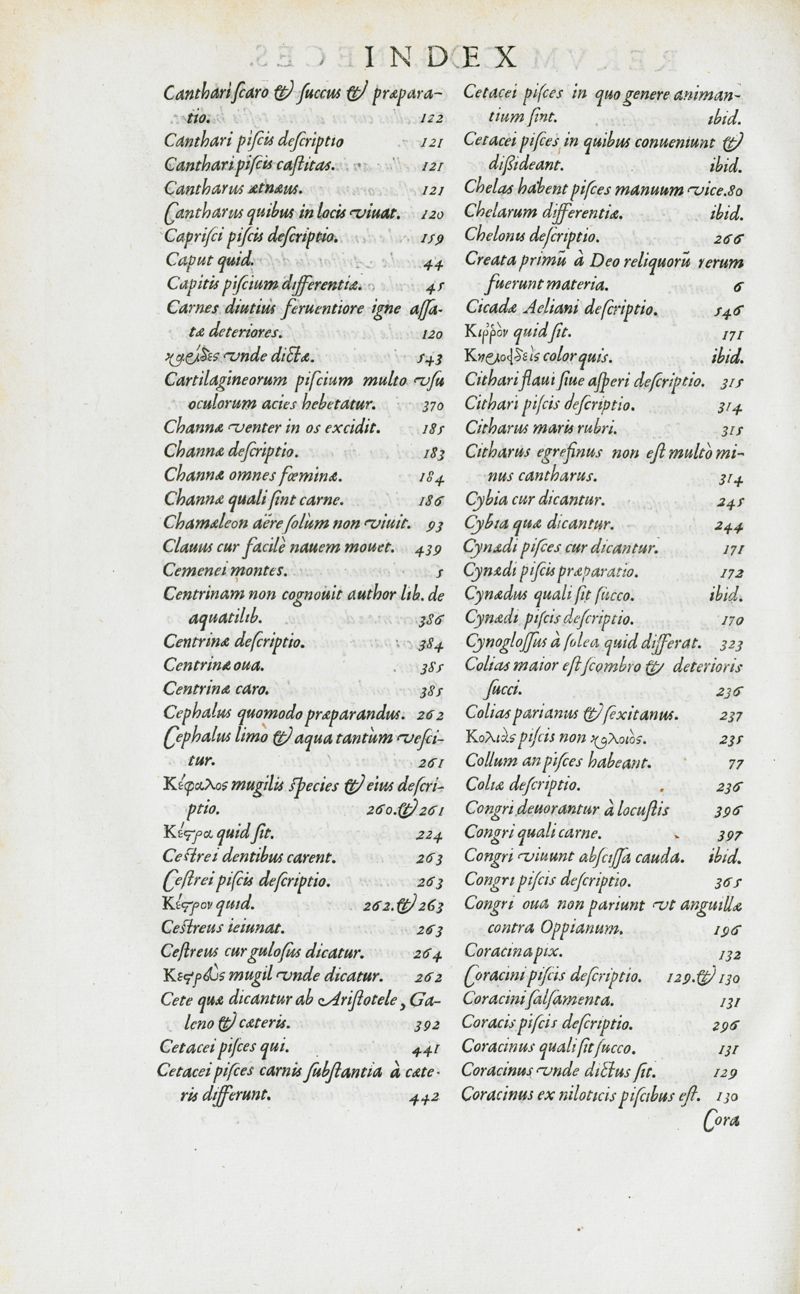 INDEX
Canthari ſcaro & ſuccus & præpara-
tio. 122
Canthari piſcis deſcriptio 121
Canthari piſcis caſtitas. 121
Cantharus ætnæus. 121
Cantharus quibus in locis viuat. 120
Capriſci piſcis deſcriptio. 159
Caput quid. 44
Capitis piſcium differentiæ. 45
Carnes diutius feruentiore igne aſſa-
tæ deteriores. 120
vnde dicta. 543
Cartilagineorum piſcium multo vſu
oculorum acies hebetatur. 370
Channæ venter in os excidit. 185
Channæ deſcriptio. 183
Channæ omnes fœminæ. 184
Channæ quali ſint carne. 186
Chamæleon aëre ſolùm non viuit. 93
Clauus cur facilè nauem mouet. 439
Cemenei montes. 5
Centrinam non cognouit author lib. de
aquatilib. 386
Centrinæ deſcriptio. 384
Centrinæ oua. 385
Centrinæ caro. 385
Cephalus quomodo præparandus. 262
Cephalus limo & aqua tantùm veſci-
tur. 261
Κέφαλος mugilis ſpecies & eius deſcri-
ptio. 260.& 261
Κέϛρα quid ſit. 224
Ceſtrei dentibus carent. 263
Ceſtrei piſcis deſcriptio. 263
Κέϛρον quid. 262.& 263
Ceſtreus ieiunat. 263
Ceſtreus cur guloſus dicatur. 264
Κεϛρεὺς mugil vnde dicatur. 262
Cete quæ dicantur ab Ariſtotele, Ga-
leno & cæteris. 392
Cetacei piſces qui. 441
Cetacei piſces carnis ſubſtantia à cæte-
ris differunt. 442
Cetacei piſces in quo genere animan-
tium ſint. ibid.
Cetacei piſces in quibus conueniunt &
diſsideant. ibid.
Chelas habent piſces manuum vice. 80
Chelarum differentiæ. ibid.
Chelonis deſcriptio. 266
Creata primũ à Deo reliquorũ rerum
fuerunt materia. 6
Cicadæ Aeliani deſcriptio. 346
Κιῤῥὸν quid ſit. 171
color quis. ibid.
Cithari flaui ſiue aſperi deſcriptio. 315
Cithari piſcis deſcriptio. 314
Citharus maris rubri. 315
Citharus egrefinus non eſt multò mi-
nus cantharus. 314
Cybia cur dicantur. 245
Cybia quæ dicantur. 244
Cynædi piſces cur dicantur. 171
Cynædi piſcis præparatio. 172
Cynædus quali ſit ſucco. ibid.
Cynædi piſcis deſcriptio. 170
Cynogloſſus à ſolea quid differat. 323
Colias maior eſt ſcombro & deterioris
ſucci. 236
Colias parianus & ſexitanus. 237
Κολιὰς piſcis non κολοιός. 235
Collum an piſces habeant. 77
Coliæ deſcriptio. 236
Congri deuorantur à locuſtis 396
Congri quali carne. 397
Congri viuunt abſciſſa cauda. ibid.
Congri piſcis deſcriptio. 365
Congri oua non pariunt vt anguillæ
contra Oppianum. 196
Coracina pix. 132
Coracini piſcis deſcriptio. 129.& 130
Coracini ſalſamenta. 131
Coracis piſcis deſcriptio. 296
Coracinus quali ſit ſucco. 131
Coracinus vnde dictus ſit. 129
Coracinus ex niloticis piſcibus eſt. 130
Cora